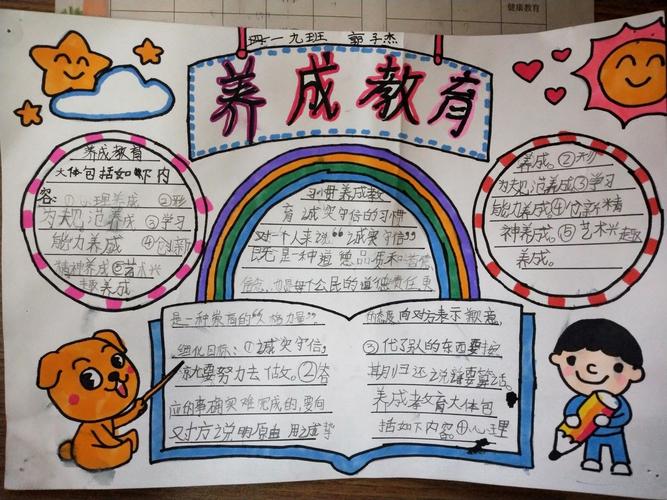 健康教育
四一九班 郭子杰
养成教育
养成教育
大体包括如下内
容:①心理养成 ②形
为规范养成 ③学习
能力养成 ④创新
精神养成⑤艺术兴
趣养成
习惯养成教
育 诚实守信的习惯
对一个人来说"诚实守信"
既是一种道德品质和
也是每个公民的道德责任
是一种崇高的"人格力量"。
细化目标:①诚实守信,
说就要努力去做。②答
应的事确实难完成的,要向
对方说明原由 用诚挚
的态度向对方表示歉意,
③代了别的东西要按
期归还说话要算话。
养成孝教育大体包
括如下内容①心理
养成。②形
为规范养成③学习
能力养成④创新精
神养成。⑤艺术兴趣
养成。